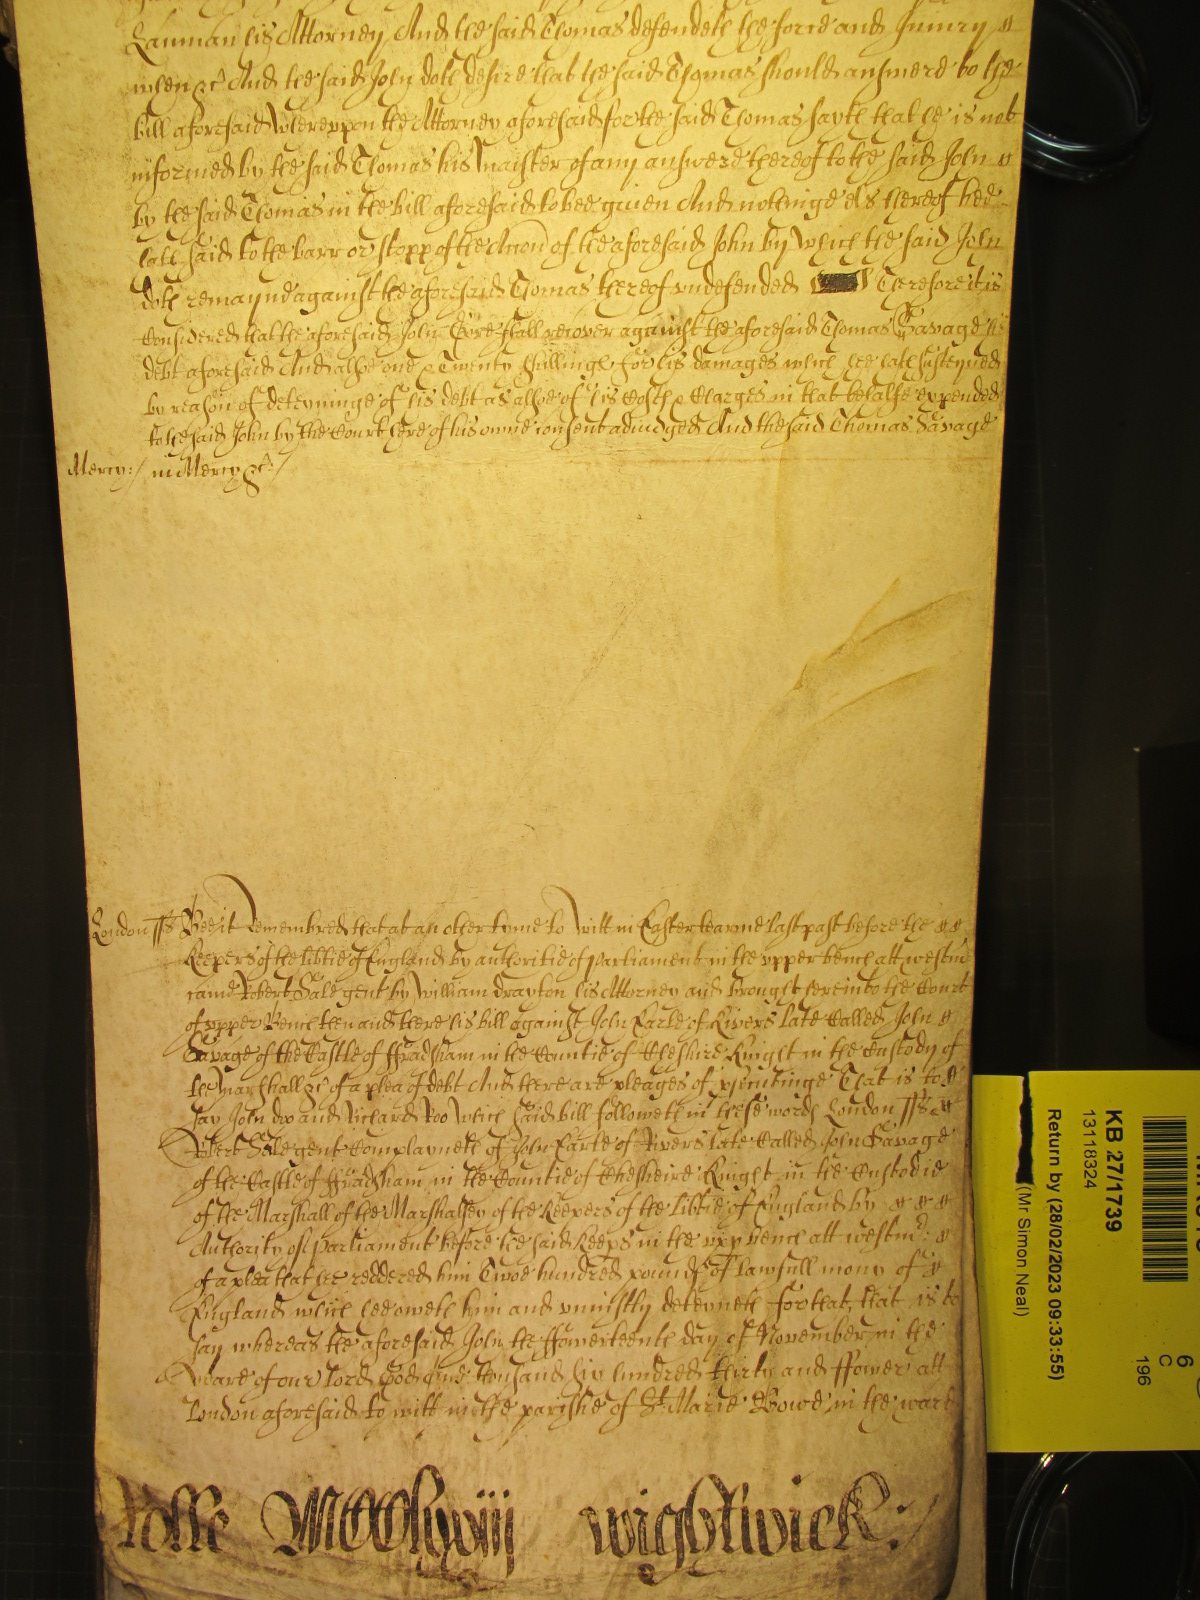 Lauman his Attorney And the said Thomas defendeth the force and Iniury
when &c And the said John doth desire that the said Thomas should answere to the
bill aforesaid Wherevppon the Attorney aforesaid for the said Thomas sayth that he is not
informed by the said Thomas his Maister of any answere thereof to the said John
by the said Thomas in the bill aforesaid to bee giuen And nothinge els thereof hee
hath said to the barr or stopp of the Accon of the aforesaid John by Which the said John
doth remayne against the aforesaid Thomas thereof vndefended Therefore it is
Considered that the aforesaid John shall recover against the aforesaid Thomas Savage his
debt aforesaid And alsoe one & Twenty shillings for his damages which hee hath susteyned
by reason of deteyninge of his debt as alsoe of his Costs & Charges in that behalfe expended
to the said John by the Court here of his owne consent adiudged And the said Thomas Savage
Mercy:/ in Mercy &c:/
London ss Bee it remembred that at an other tyme to Witt in Easter tearme last past before the
Keepers of the libtie of England by authoritie of parliament in the vpper bench att westm
came Robert Sale gent by William drayton his Attorney and brought here into the Court
of vpper Bench then and there his bill against John Earle of Rivers late Called John
Savage of the Castle of ffradsham in the Countie of Cheshire Knight in the Custody of
the Marshall &c of a plea of debt And there are pleages of prosecutinge That is to
say John doo and Richard Roo Which said bill followeth in these words London ss
Robert Sale gent Complayneth of John Earle of Rivers late Called John Savage
of the Castle of ffradsham in the Countie of Chesheire Knight in the Custodie
of the Marshall of the Marshalsey of the Keepers of the libtie of England by
Authority of parliament before the said Keeps in the vpp bench att westm:
of a plea that hee rendered him Twoe hundred pounds of lawfull mony of
England which hee oweth him and vniustly deteyneth for that, that is to
say whereas the aforesaid John the ffowerteenth day of November in the
yeare of our lord God One thousand six hundred thirty and ffower att
London aforesaid to witt in the parishe of St Marie Bowe in the ward
Rolle MCClxviij wightwick:
KB 27/1739
13118324
Return by (28/02/2023 09:33:55)
(Mr Simon Neal)
6
C
196